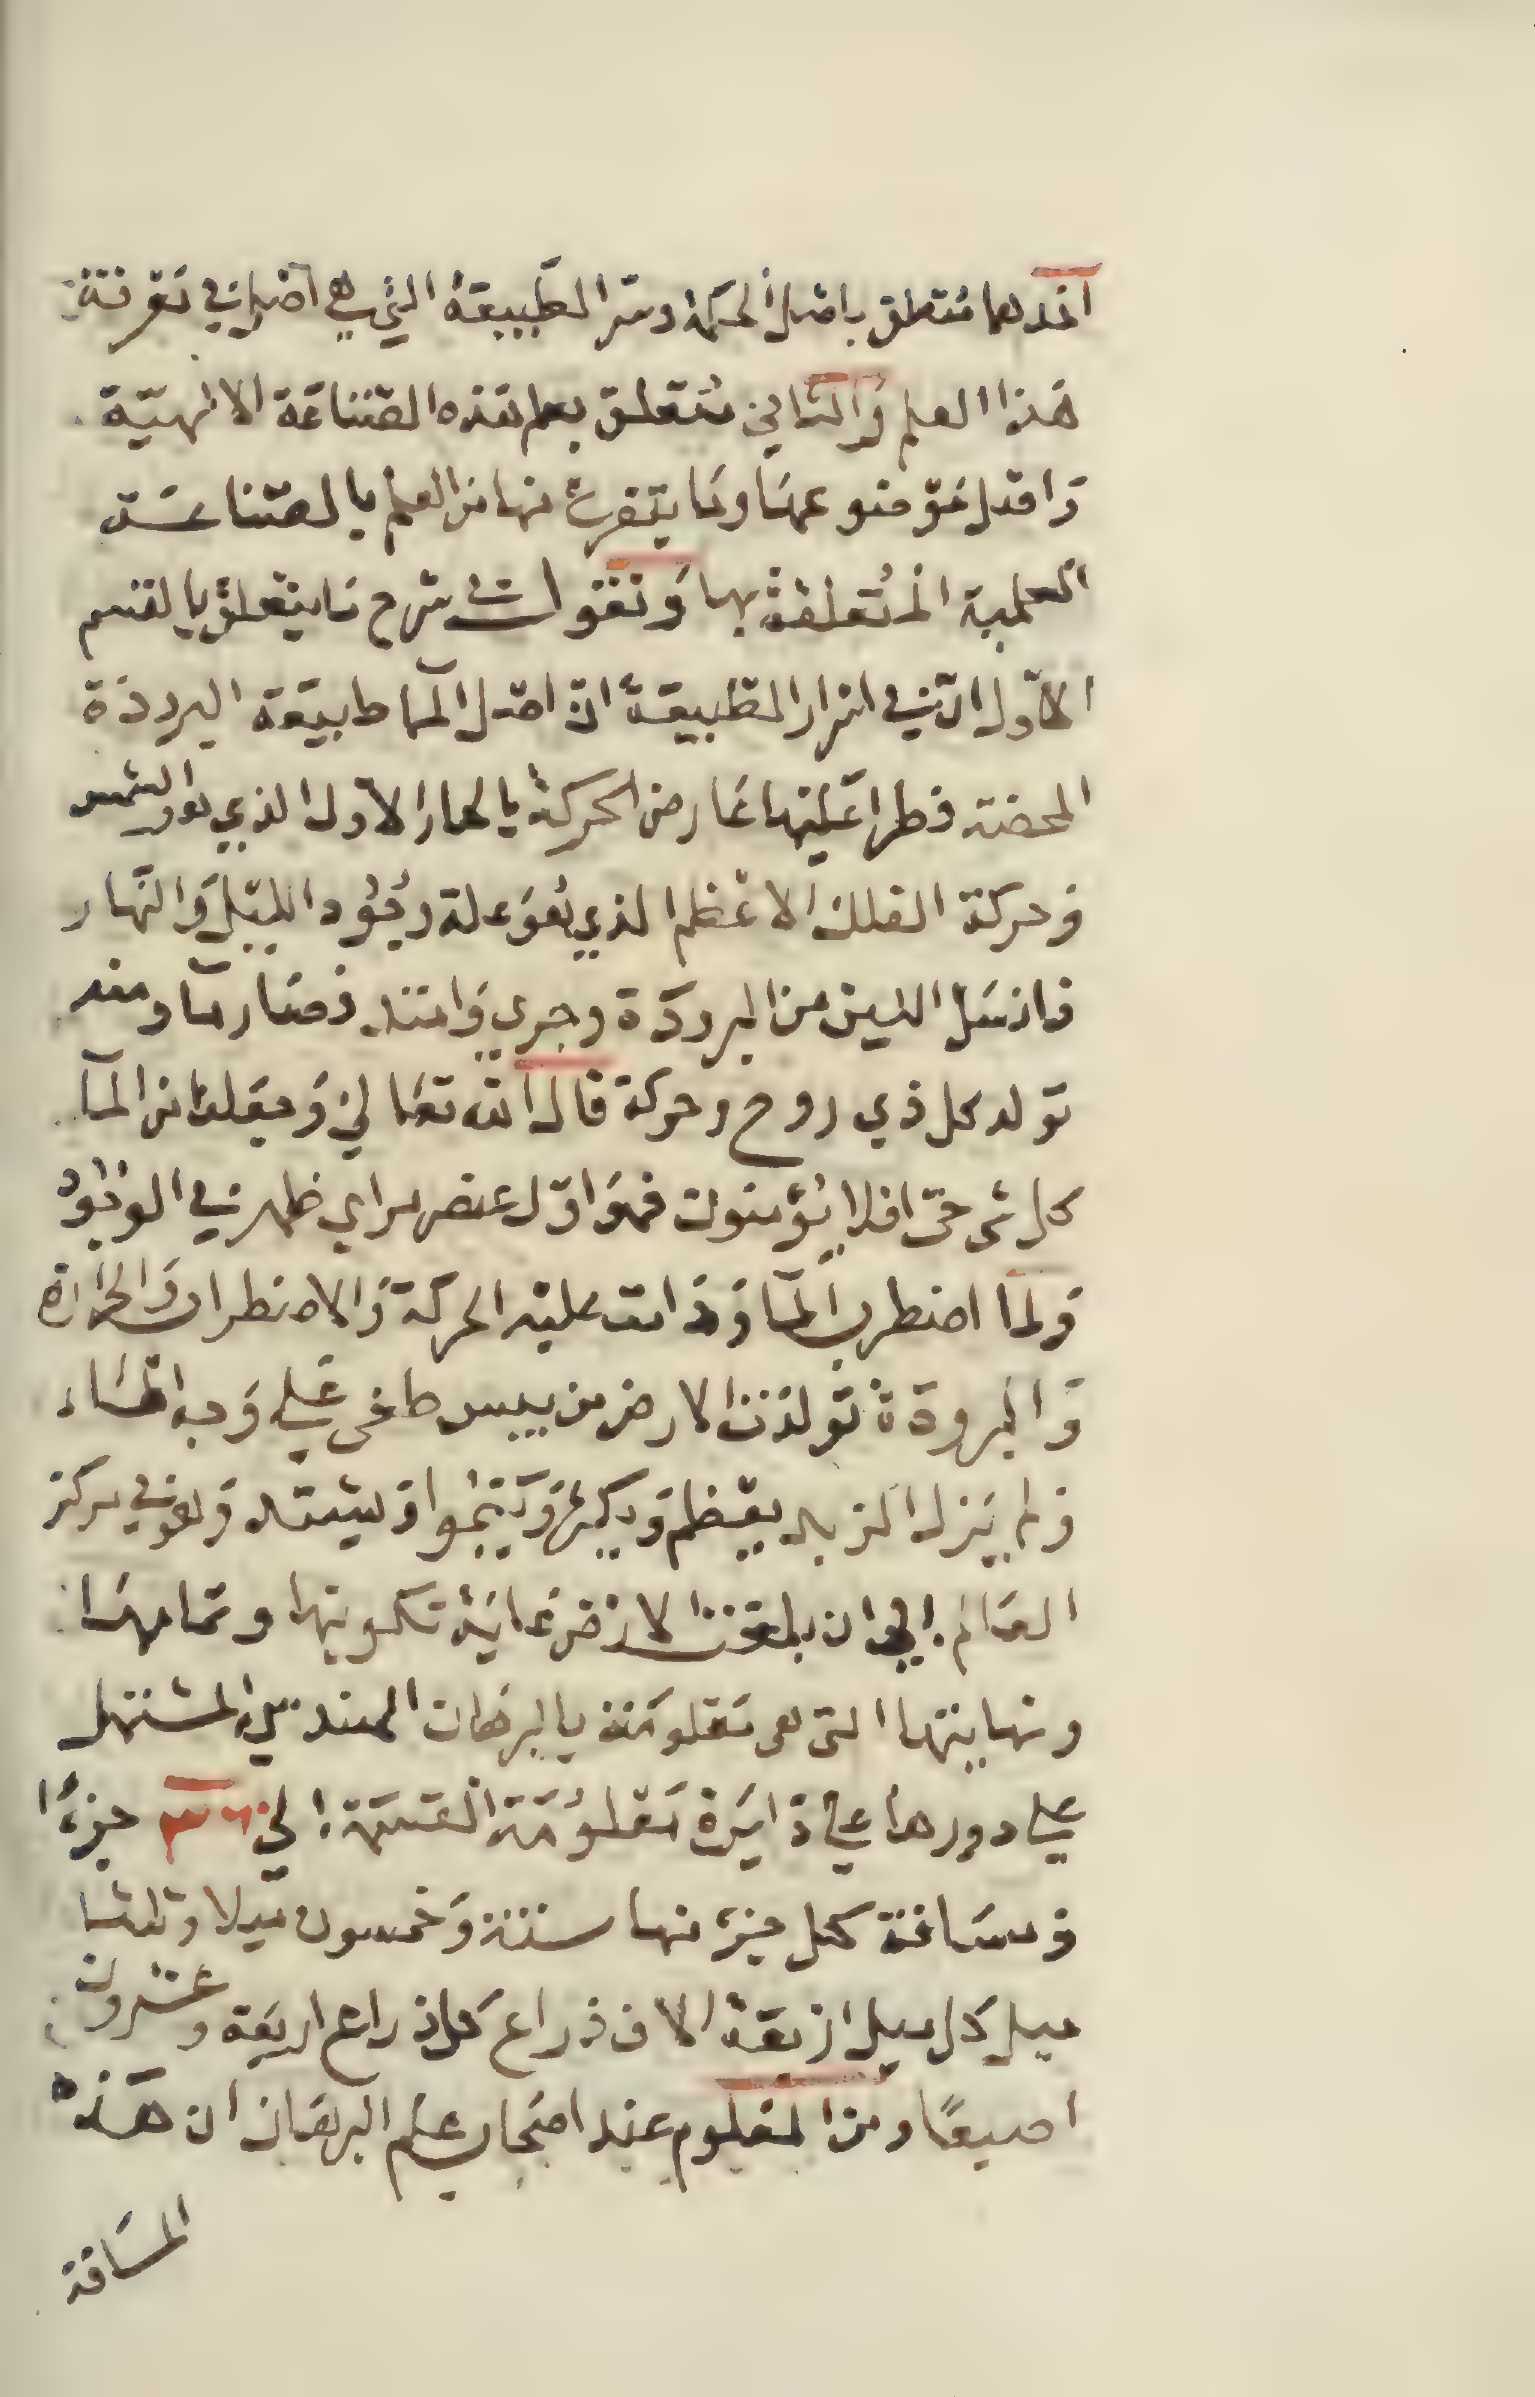 احدهما متعلق باصل الحكمة وسر الطبيعة التي هي اصل في معرفة
هذا العلم والثاني متعلق بعلم هذه الصناعة الالهية
واصل موضوعها وما يتفرع منها من العلم بالصناعة
العلمية المتعلقة بها ونقول في شرح ما يتعلق بالقسم
الاول ان في اسرار الطبيعة ان اصل المآ طبيعة البرودة
المحضة فطرا عليها عارض الحركة بالحار الاول الذي هو الشمس
وحركة الفلك الاعظم الذي هو علة وجود الليل والنهار
فانسل اللين من البرودة وجري وامتد فصار مآ ومنه
تولد كل ذي روح وحركة قال الله تعالي وجعلنا من المآ
كل شي حي افلا يؤمنون فهو اول عنصر مراي ظهر في الوجود
ولما اضطرب المآ وذات عليه الحركة والاضطراب والحرارة
والبرودة تولدت الارض من يبس طفى علي وجه الماء
ولم يزل الزبد يعظم ويكبر وينموا ويشتد وهو في مركز
العالم الي ان بلغت الارض غاية تكوينها وتمامها
ونهايتها التي هي معلومة بالبرهان الهندسي المشتهل
علي دورها علي دايرة معلومة القسمة الي ٣٦٠ جزءا
ومسافة كل جزء منها ستة وخمسون ميلا وثلثا
ميل كل ميل اربعة الاف ذراع كل ذراع اربعة وعشرون
اصبعًا ومن المعلوم عند اصحاب علم البرهان ان هذه
المسافة